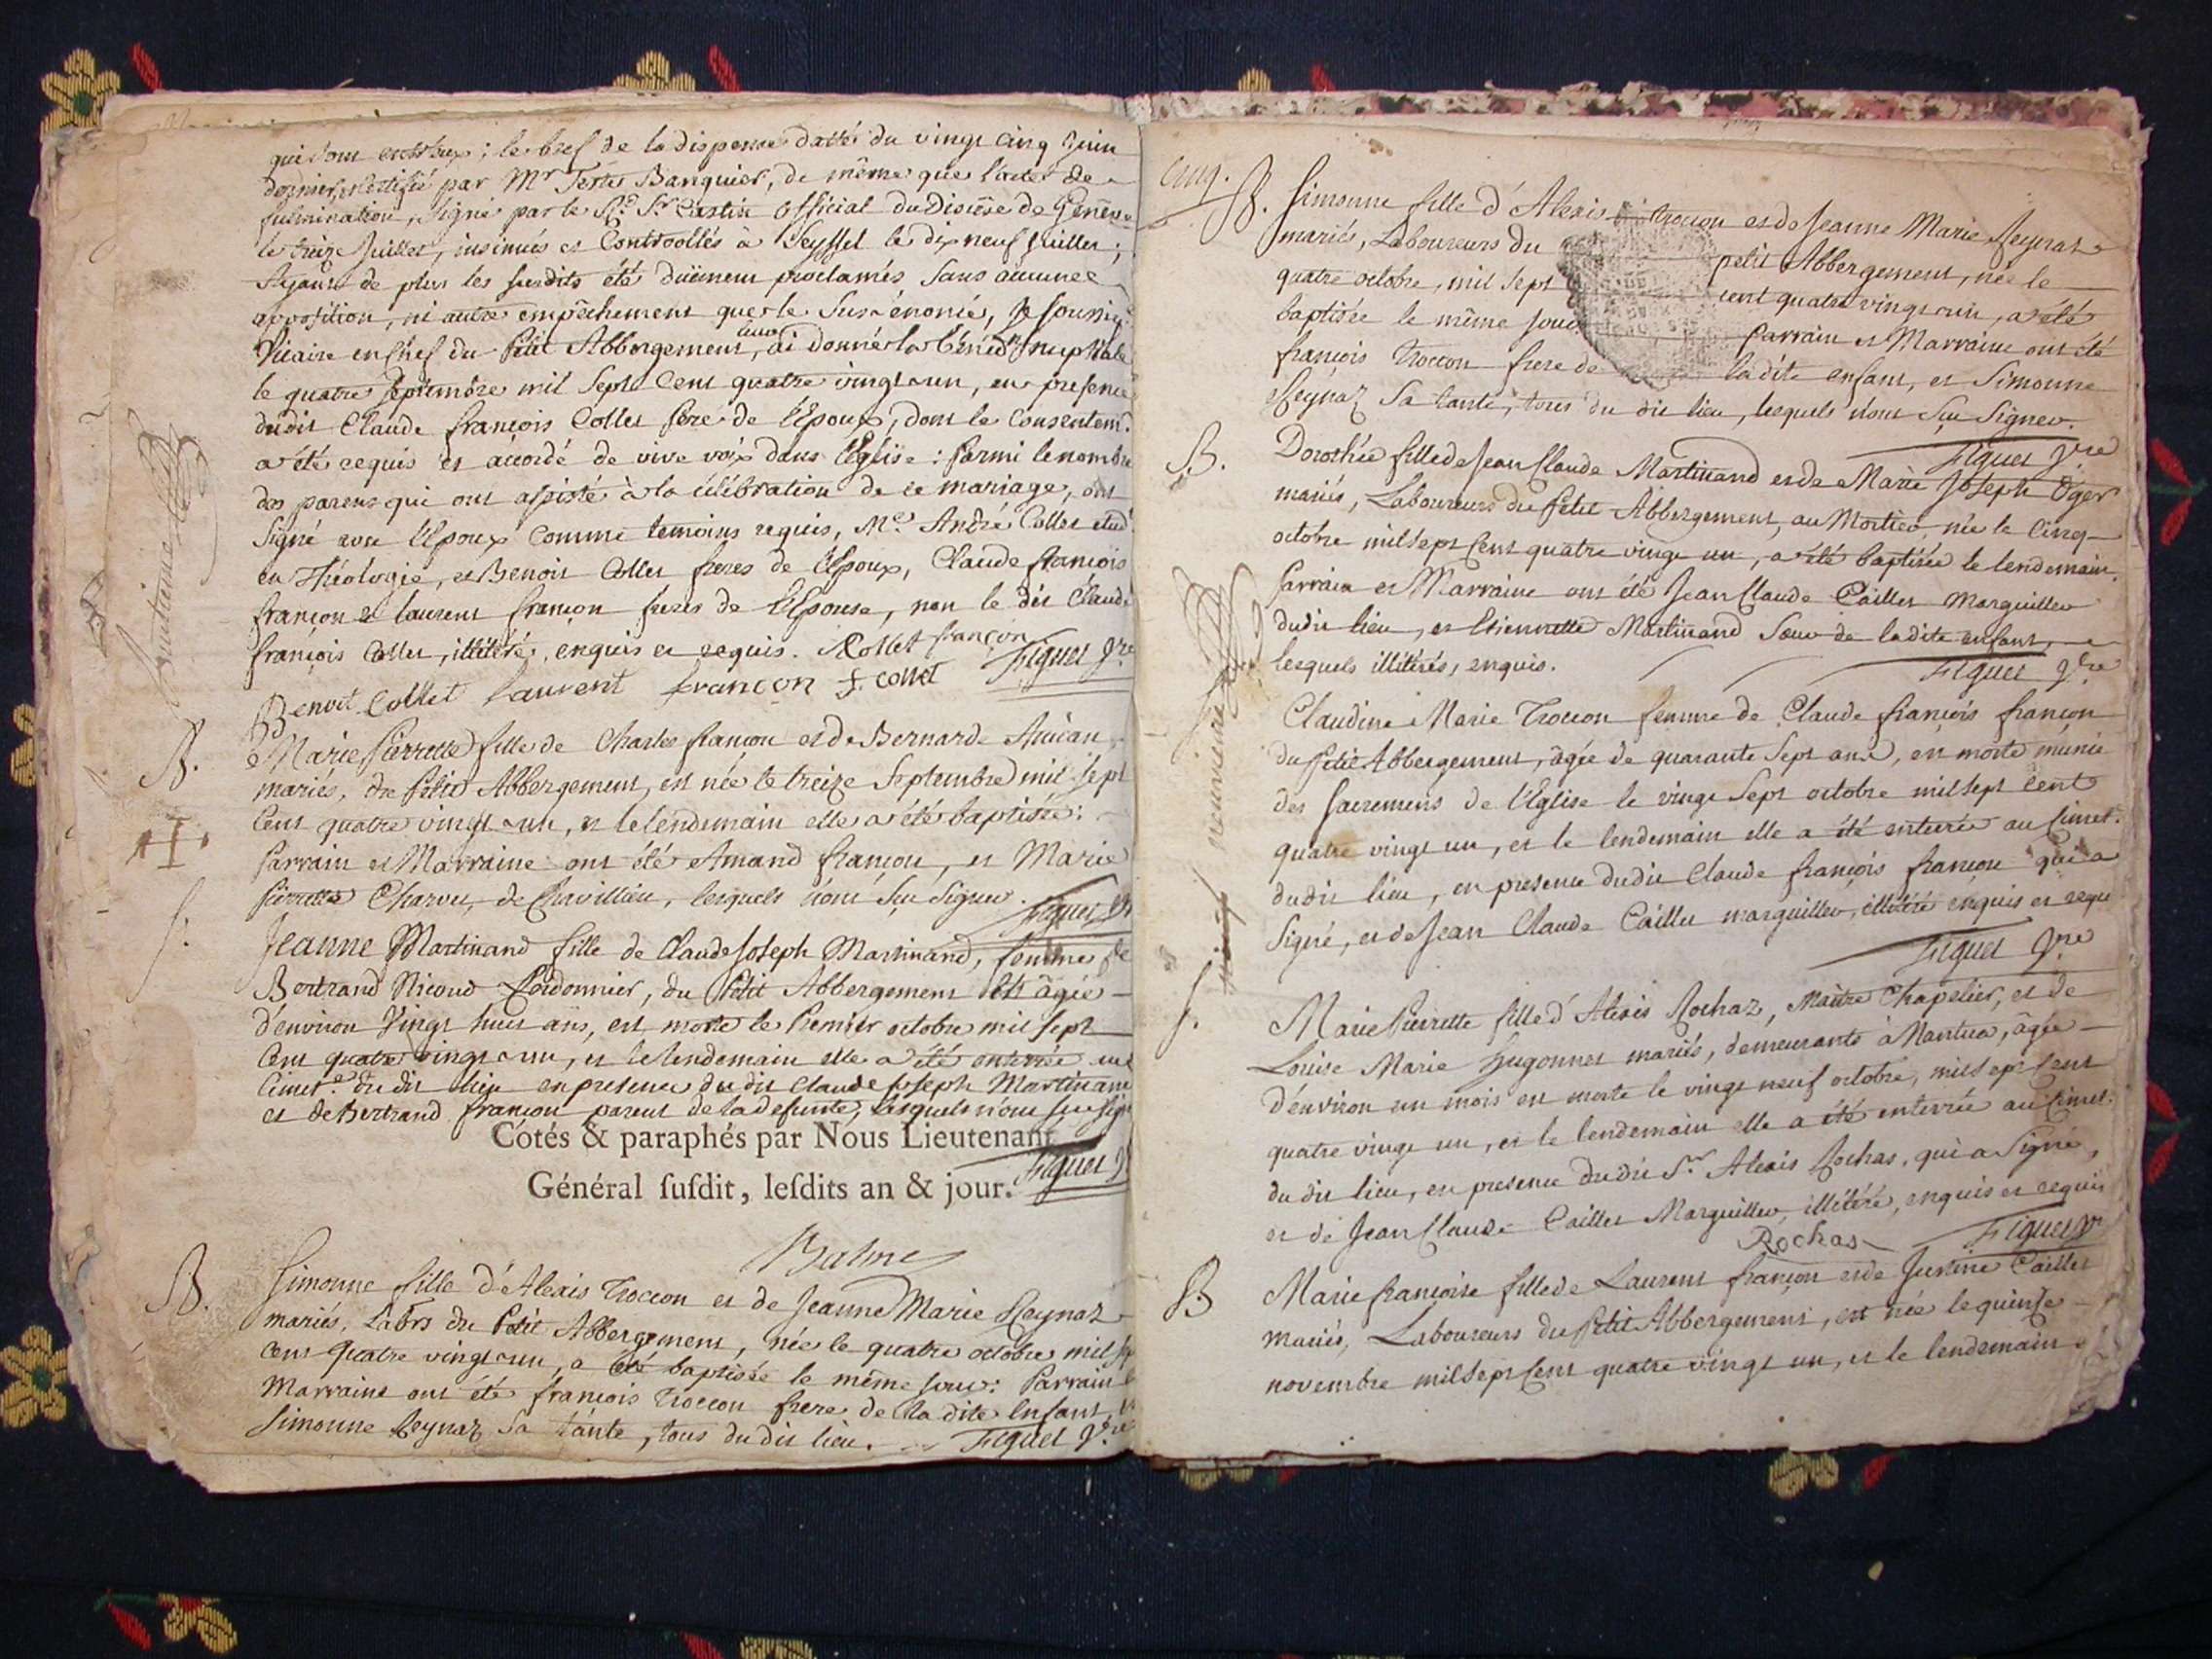 qui sont entr'eux ; le bref de la dispense datté du vingt cinq Juin
dernier, certifié par Mr Teste Banquier, de même que l'acte de
fulmination, signé par le Rd Sr Castin official du Diocèse de Genève
le treize Juillet, insinués et Controollés à Seyssel le dix neuf Juillet ;
Ayant de plus les susdits été duëment proclamés sans aucunee
opposition, ni autre empêchement que le susénoncé, Je soussig.
Vicaire en chef du Petit Abbergement, leur ai donné la bénédon nuptiale
le quatre Septembre mil Sept Cent quatre vingt-un, en presence
dudit Claude françois Collet Pere de l'Epoux, dont le Consentemt
a été requis et accordé de vive voix dans l'Eglise : Parmi le nombre
des parens qui ont assisté à la célébration de ce mariage, ont
signé avec l'Epoux comme temoins requis, Me André Collet etudt
en Théologie, et Benoit Collet freres de l'Epoux, Claude françois
françon et laurent françon freres de l'Epouse, non le dit Claude
françois Collet, illitéré, enquis et requis. A Collet françon
Benoit Collet laurent françon f. collet Figuet Vre
B.
Marie Pierrette fille de Charles françon et de Bernarde
mariés, du Petit Abbergement, est née le treize Septembre mil sept
Cent quatre vingt-un, et le lendemain elle a été baptisée :
Parrain et Marraine ont été Amand françon, et Marie
Pierrette Charvet, de Chavillieu, lesquels n'ont sçu signer. Figuet Vre
S.
Jeanne Martinand fille de Claude Joseph Martinand, femme de
Bertrand Nicoud Cordonnier, du Petit Abbergement Est âgée
d'environ vingt huit ans, est morte le Premier octobre mil sept
Cent quatre vingt-un, et le lendemain elle a été enterrée au
Cimete du dit lieu en presence du dit Claude Joseph Martinand
et de Bertrand françon parent de la defunte, lesquels n'ont sçu sign
Cotés & paraphés par Nous Lieutenant
Général susdit, lesdits an & jour. Figuet V
Balme
B.
Simonne fille d'Alexis Troccon et de Jeanne Marie Reynaz
mariés, Labrs du Petit Abbergement, née le quatre octobre mil sept
cent quatre vingt-un, a été baptisée le même jour : Parrain et
Marraine ont été françois Troccon frere de la dite Enfant, et
Simonne Reynaz sa tante, tous du dit lieu. Figuet Vre
cinq.
B. Simonne fille d'Alexis Troccon et de Jeanne Marie Reynaz
mariés, Laboureurs du petit Abbergement, née le
quatre octobre, mil sept cent quatre vingt-un, a été
baptisée le même jour Parrain et Marraine ont été
françois Troccon frere de ladite enfant, et Simonne
Reynaz sa tante, tous du dit lieu, lesquels n'ont sçu signer.
Figuet Vre
B.
Dorothée fille de Jean Claude Martinand et de Marie Joseph Oger
mariés, Laboureurs du Petit Abbergement, au Mortier, née le Cinq
octobre mil sept Cent quatre vingt un, a été baptisée le lendemain.
Parrain et Marraine ont été Jean Claude Caillet Marguillier
dudit lieu, et Etiennette Martinand Sœur de ladite enfant,
lesquels illitérés, enquis.
Figuet Vre
Claudine Marie Troccon femme de Claude françois françon
du Petit Abbergement, âgée de quarante Sept ans, est morte munie
des Sacremens de l'Eglise le vingt Sept octobre mil sept cent
quatre vingt un, et le lendemain elle a été enterrée au Cimet.
dudit lieu, en presence dudit Claude françois françon qui a
signé, et de Jean Claude Caillet marguillier, illitéré enquis et requ
Figuet Vre
S.
Marie Pierrette fille d'Alexis Rochaz, Maître Chapelier, et de
Louise Marie Hugonnet mariés, demeurants à Nantua, âgée
d'environ un mois est morte le vingt neuf octobre, mil sept Cent
quatre vingt un, et le lendemain elle a été enterrée au Cimet.
du dit lieu, en presence du dit Sr Alexis Rochas, qui a signé,
et de Jean Claude Caillet Marguillier, illitéré, enquis et requis
Rochas Figuet Vre
B
Marie françoise fille de Laurent françon et de Justine Caillet
mariés, Laboureurs du Petit Abbergement, est née le quinze
novembre mil sept Cent quatre vingt un, et le lendemain